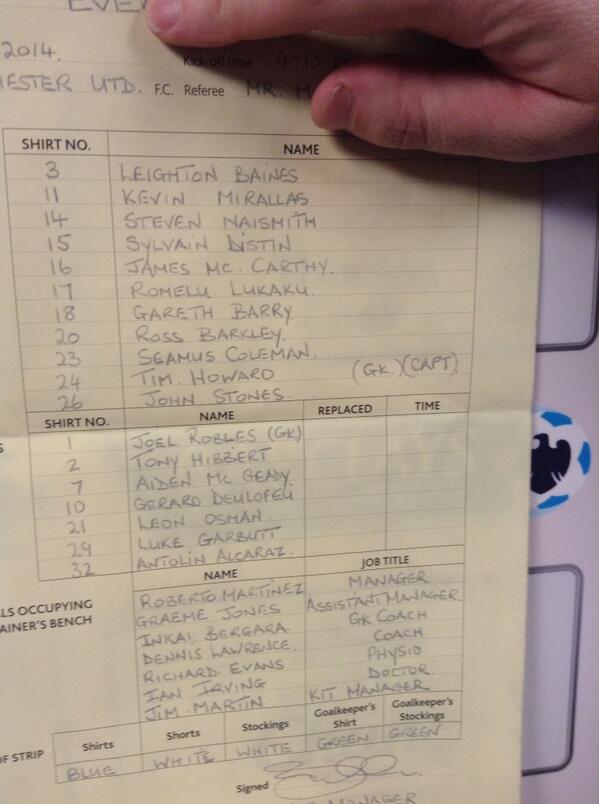 EVE
2014. Kick-off time 4-10
HESTER UTD. F.C. Referee MR. M
SHIRT NO. NAME
3 LEIGHTON BAINES
11 KEVIN MIRALLAS
14 STEVEN NAISMITH
15 SYLVAIN DISTIN
16 JAMES MC. CARTHY.
17 ROMELU. LUKAKU.
18 GARETH BARRY
20 ROSS BARKLEY.
23 SEAMUS COLEMAN.
24 TIM. HOWARD (GK.)(CAPT)
26 JOHN STONES.
SHIRT NO. NAME REPLACED TIME
1 JOEL ROBLES (GK)
2 TONY HIBBERT
7 AIDEN MC GEADY.
10 GERARD DEULOFEU
21 LEON OSMAN.
29 LUKE GARBUTT
32 ANTOLIN ALCARAZ.
NAME JOB TITLE
ROBERTO MARTINEZ MANAGER
GRAEME JONES ASSISTANT MANAGER.
LS OCCUPYING INKAI, BERGARA. GK COACH
AINER'S BENCH DENNIS LAWRENCE. COACH
RICHARD EVANS PHYSIO
IAN IRVING DOCTOR
JIM. MARTIN KIT MANAGER
OF STRIP Shirts Shorts Stockings Goalkeeper's Shirt Goalkeeper's Stockings
BLUE WHITE WHITE GREEN GREEN.
Signed
MANAGER